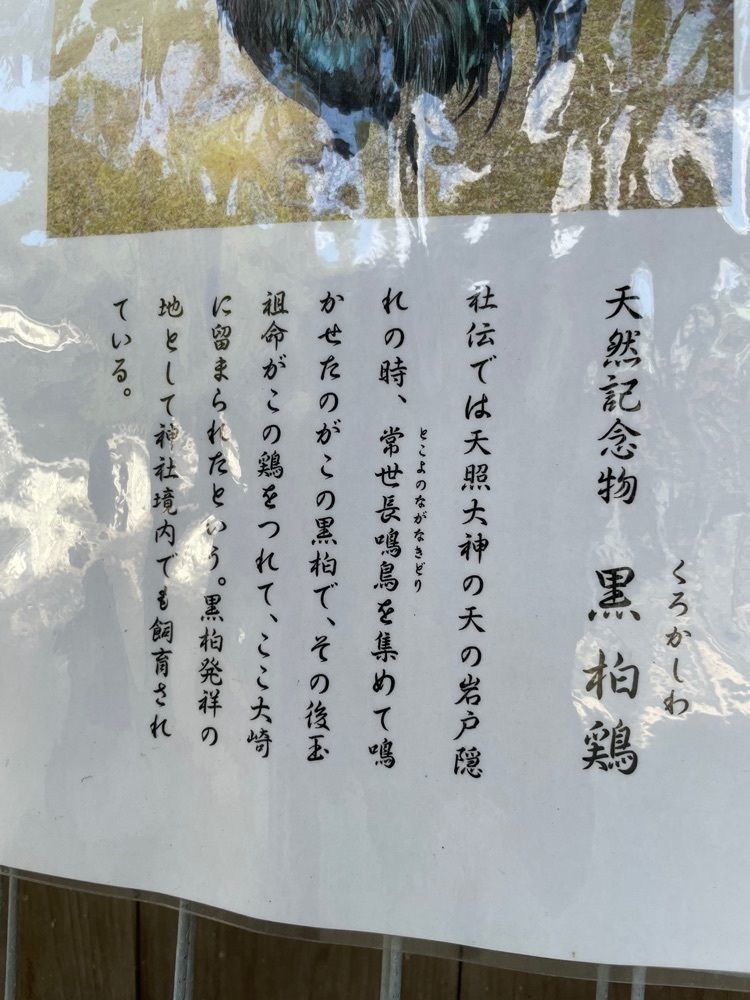 くろかしわ
天然記念物 黒柏鶏
社伝では天照大神の天の岩戸隠
れの時、常世長鳴鳥を集めて鳴
とこよのながなきどり
かせたのがこの黒柏で、その後玉
祖命がこの鶏をつれて、ここ大崎
に留まられたという。黒柏発祥の
地として神社境内でも飼育され
ている。